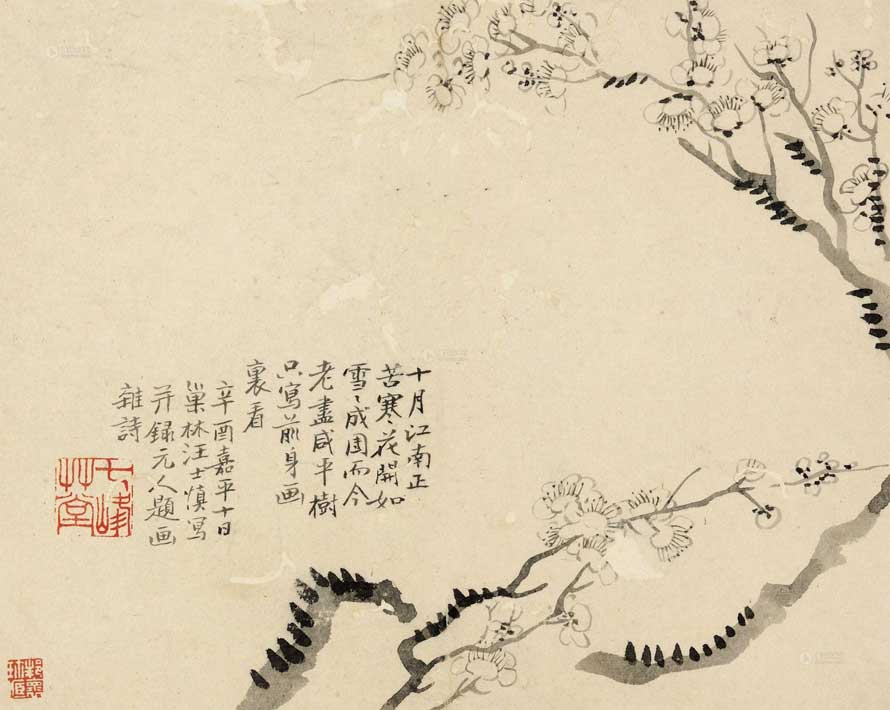 十月江南正
苦寒花開如
雪〻成團而今
老盡咸平樹
只寫前身画
裏看
辛酉嘉平十日
巢林汪士慎寫
并録元人題画
雜詩
七峰
草堂